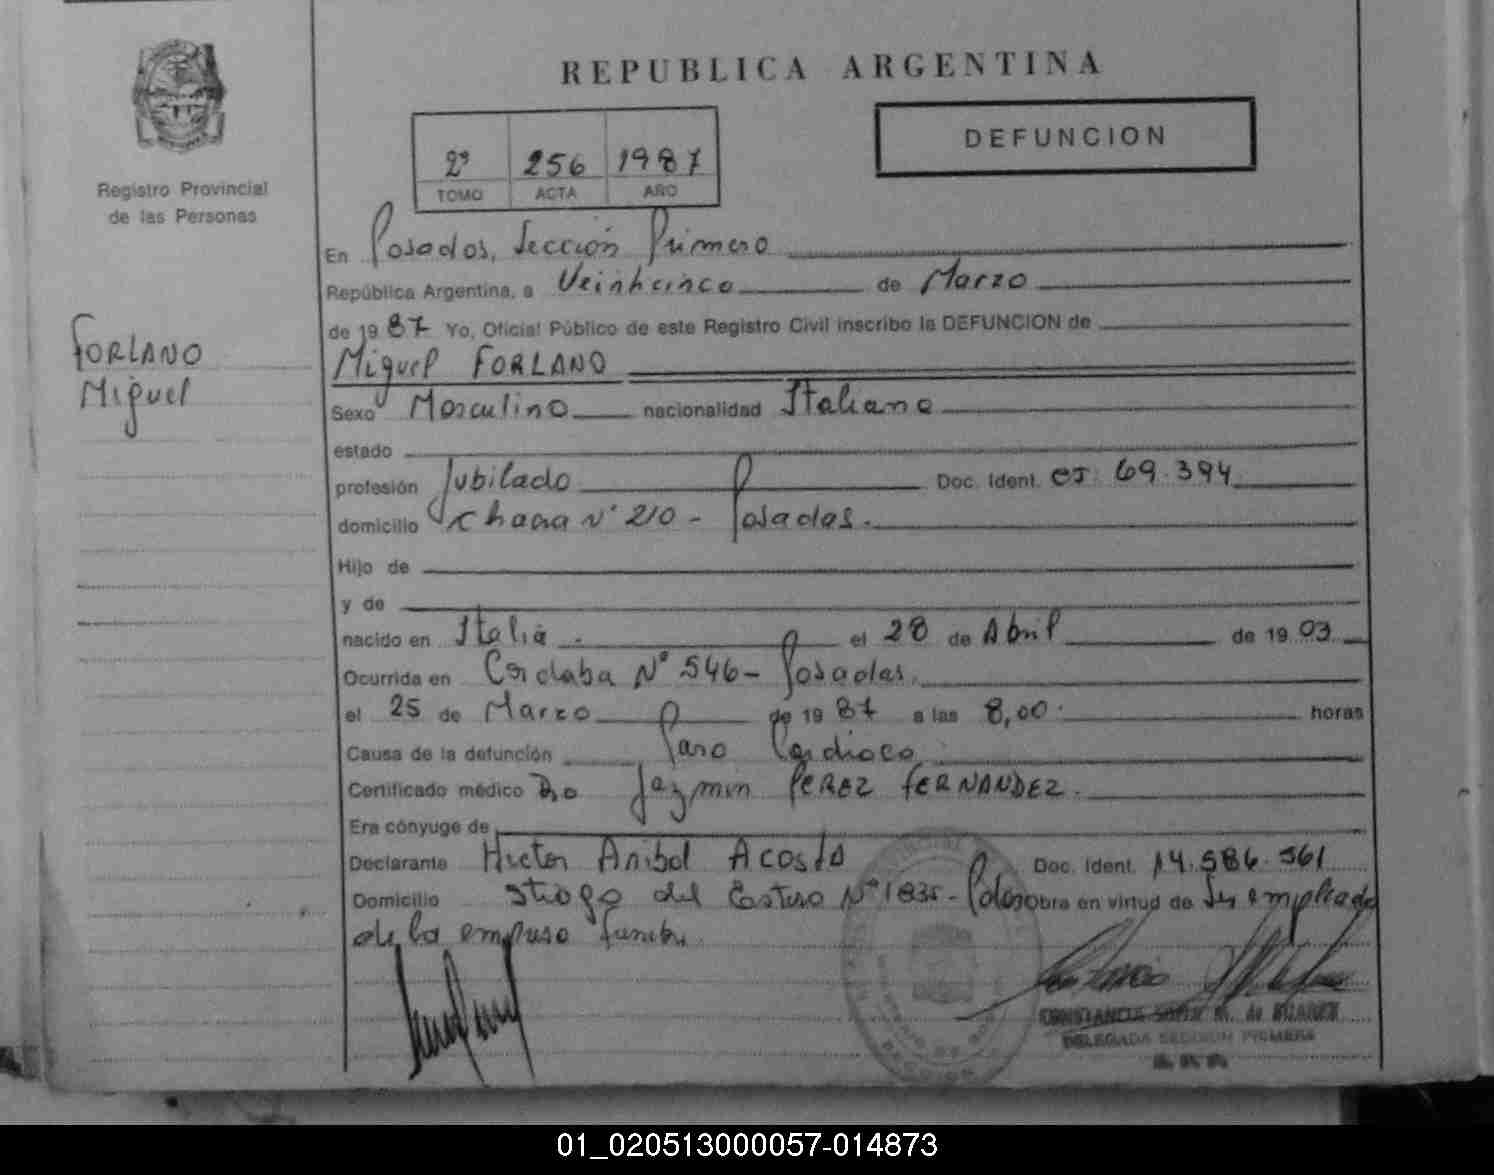 REPUBLICA ARGENTINA
DEFUNCION
2º 256 1987
TOMO ACTA AÑO
Registro Provincial
de las Personas
FORLANO
Miguel
En Posadas, Sección Primera
República Argentina, a Veinticinco de Marzo
de 1987 Yo, Oficial Público de este Registro Civil inscribo la DEFUNCION de
Miguel FORLANO
Sexo Masculino nacionalidad Italiana
estado
profesión Jubilado Doc. Ident. CI. 69.394
domicilio Chacra Nº 210 - Posadas.
Hijo de
y de
nacido en Italia. el 28 de Abril de 1903
Ocurrida en Córdoba Nº 546 - Posadas.
el 25 de Marzo de 1987 a las 8,00. horas
Causa de la defunción Paro Cardiaco
Certificado médico Dra Jazmin PEREZ FERNANDEZ.
Era cónyuge de
Declarante Hector Anibal Acosta Doc. Ident. 14.586.561
Domicilio Stiago del Estero Nº 1835 - Obra en virtud de Ser empleado
de la empresa funebre
CONSTANCIA M. de SUAREZ
DELEGADA SECCION PRIMERA
01_020513000057-014873